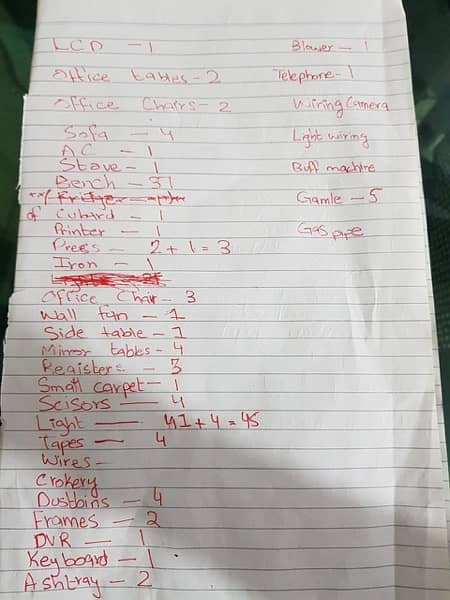 LCD - 1
Office tables - 2
Office Chairs - 2
Sofa - 4
AC - 1
Stove - 1
Bench - 31
Cubard - 1
Printer - 1
Press - 2 + 1 = 3
Iron - 1
Office Chair - 3
Wall fan - 1
Side table - 1
Mirror tables - 4
Registers - 3
Small carpet - 1
Scisors - 4
Light - 41 + 4 = 45
Tapes - 4
Wires -
Crokery
Dustbins - 4
Frames - 2
DVR - 1
Keyboard - 1
Ashtray - 2
Blawer - 1
Telephone - 1
Wiring Camera
Light wiring
Buff machine
Gamle - 5
Gas pipe